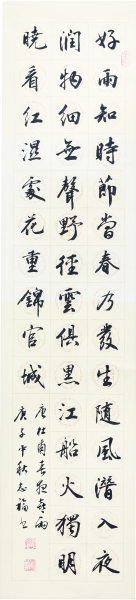 好雨知時節當春乃發生隨風潛入夜
潤物細無聲野徑雲俱黑江船火獨明
曉看紅濕處花重錦官城
唐杜甫春夜喜雨
庚子中秋志福書